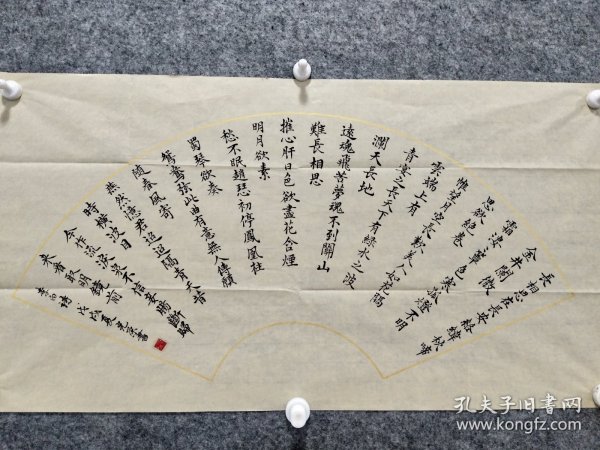 長相思在長安絡緯秋啼
金井闌微
霜淒淒簟色寒孤燈不明
思欲絕卷
帷望月空長歎美人如花隔
雲端上有
青冥之長天下有綠水之波
瀾天長地
遠魂飛苦夢魂不到關山
難長相思
摧心肝日色欲盡花含煙
明月欲素
愁不眠趙瑟初停鳳凰柱
蜀琴欲奏
鴛鴦弦此曲有意無人傳願
隨春風寄
燕然憶君迢迢隔青天昔
時橫波目
今作流淚泉不信妾腸斷歸
來看取明鏡前
李白詩戊戌夏書
孔夫子旧書网
www.kongfz.com